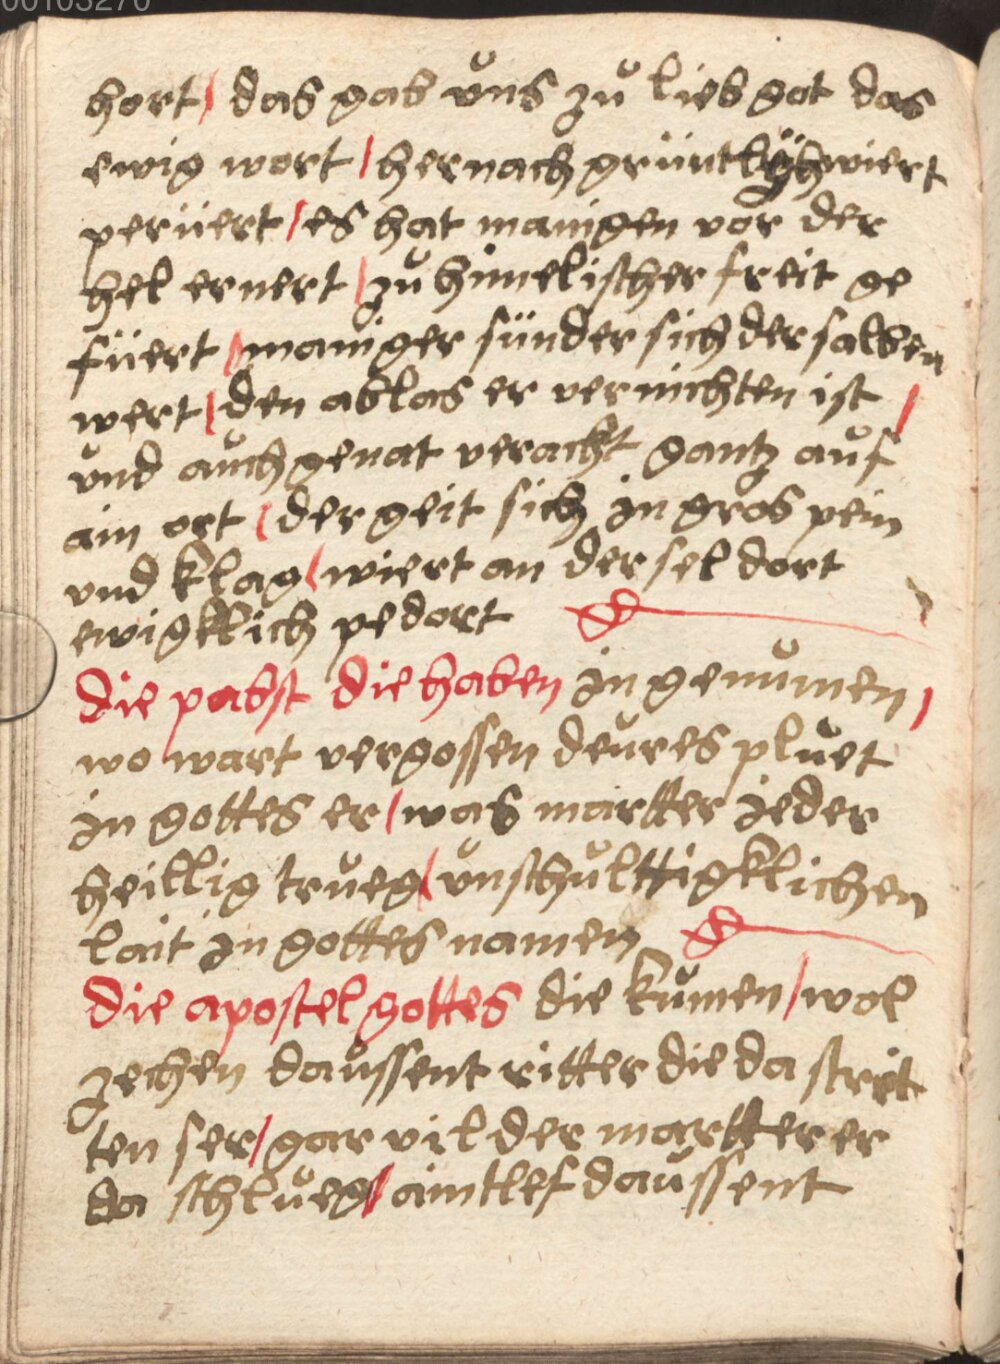 00103270
hort / das gab uns zů lieb got das
ewig wort / hernach grüntlych wiert
perüert / es hat manigen vor der
hel ernert / zů himelischer freit ge
füert / maniger sünder sich der salben
wert / den ablas er vernichten ist /
vnd auch genat veracht gantz auf
ain ort / der geit sich jn gros pein
vnd klag / wiert an der sel dort
ewigklich pedort
die pabst die haben jn genůmen /
wo wart vergossen deures pluet
jn gottes er / was martter jeder
heillig trueg / vnschulttigklichen
lait jn gottes namen
die apostel gottes die kůmen / wol
zechen daussent ritter die da strit
ten ser / gar vil der martter er
da schlueg / aintlef daussent